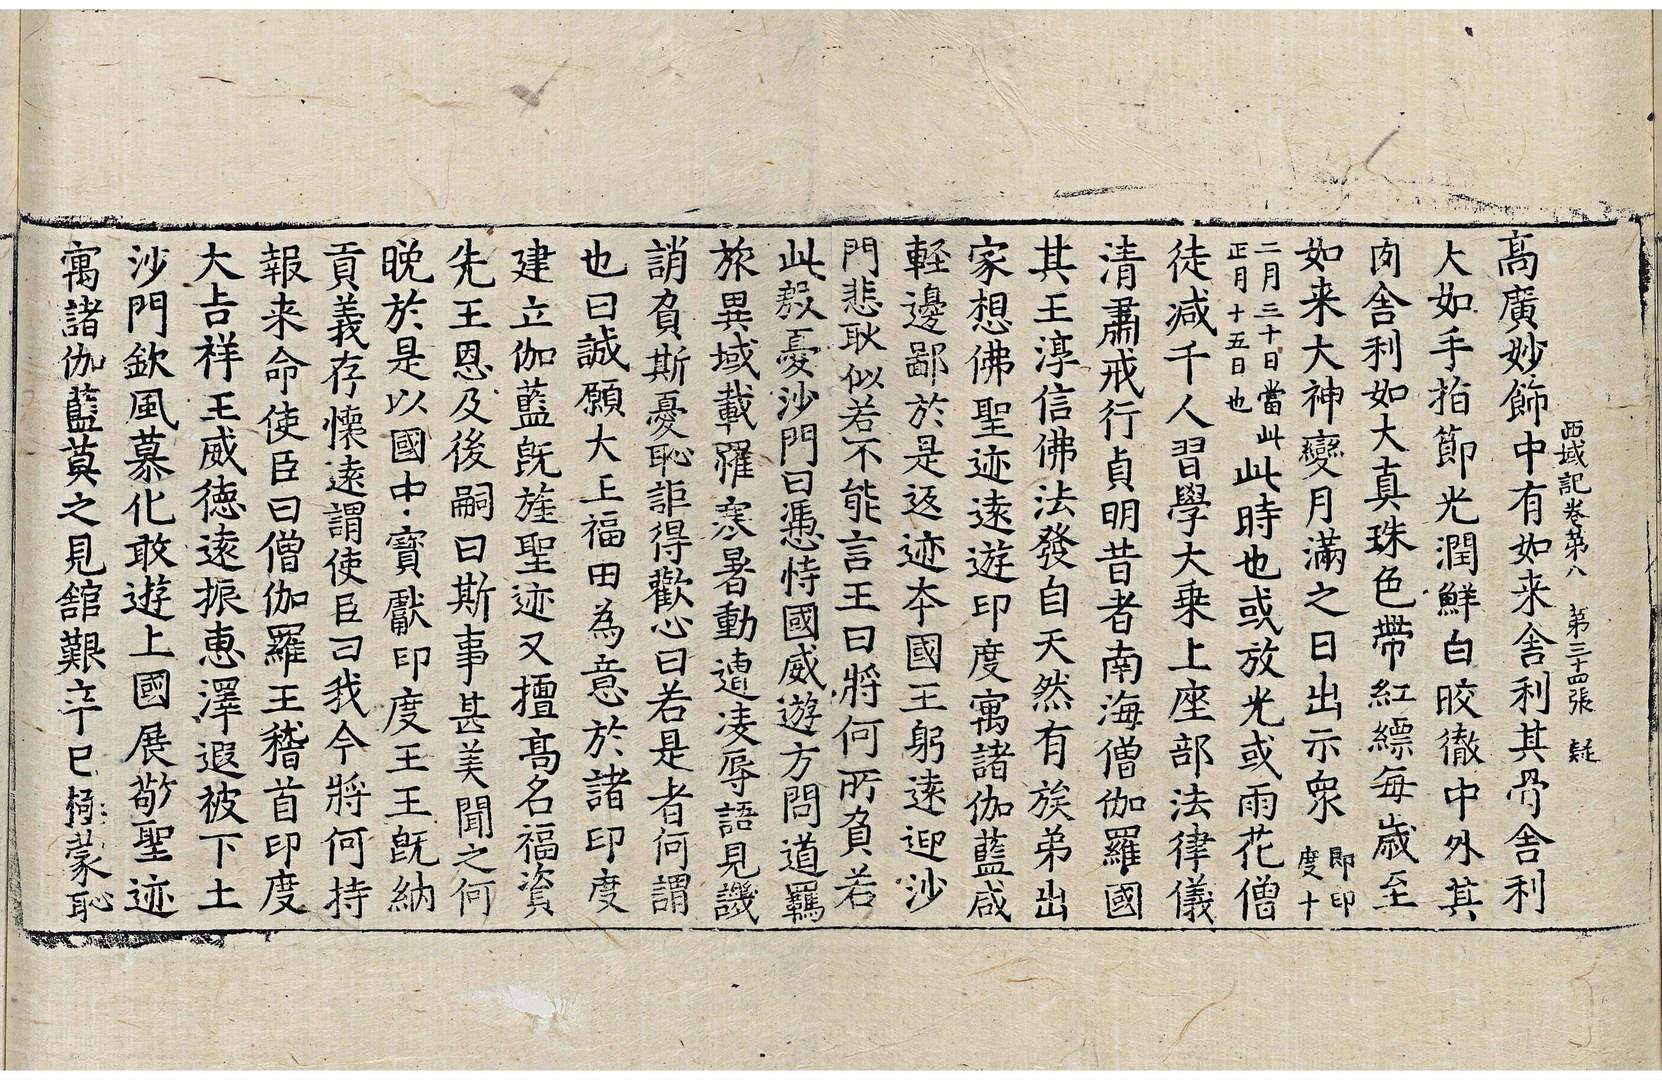 西域記卷第八 第三十四張 疑
高廣妙飾中有如来舎利其骨舎利
大如手指節光潤鮮白皎徹中外其
肉舎利如大真珠色帶紅縹每歳至
如来大神變月滿之日出示衆 即印度十
二月三十日當此正月十五日也 此時也或放光或雨花僧
徒减千人習學大乗上座部法律儀
清肅戒行貞明昔者南海僧伽羅國
其王淳信佛法發自天然有族弟出
家想佛聖迹逺遊印度寓諸伽藍咸
輕邊鄙於是返迹夲國王躬逺迎沙
門悲耿似若不能言王曰將何所負若
此憂沙門曰憑恃國威遊方問道羈
旅異域載羅寒暑動遭凌辱語見譏
誚負斯憂恥詎得歡心曰若是者何謂
也曰誠願大王福田為意於諸印度
建立伽藍旣旌聖迹又擅髙名福資
先王恩及後嗣曰斯事甚美聞之何
晚於是以國中寳獻印度王王旣納
貢義存懷逺謂使臣曰我今將何持
報来命使臣曰僧伽羅王稽首印度
大吉祥王威德逺振惠澤遐被下土
沙門欽風慕化敢遊上國展敬聖迹
寓諸伽藍莫之見館艱辛已極蒙恥